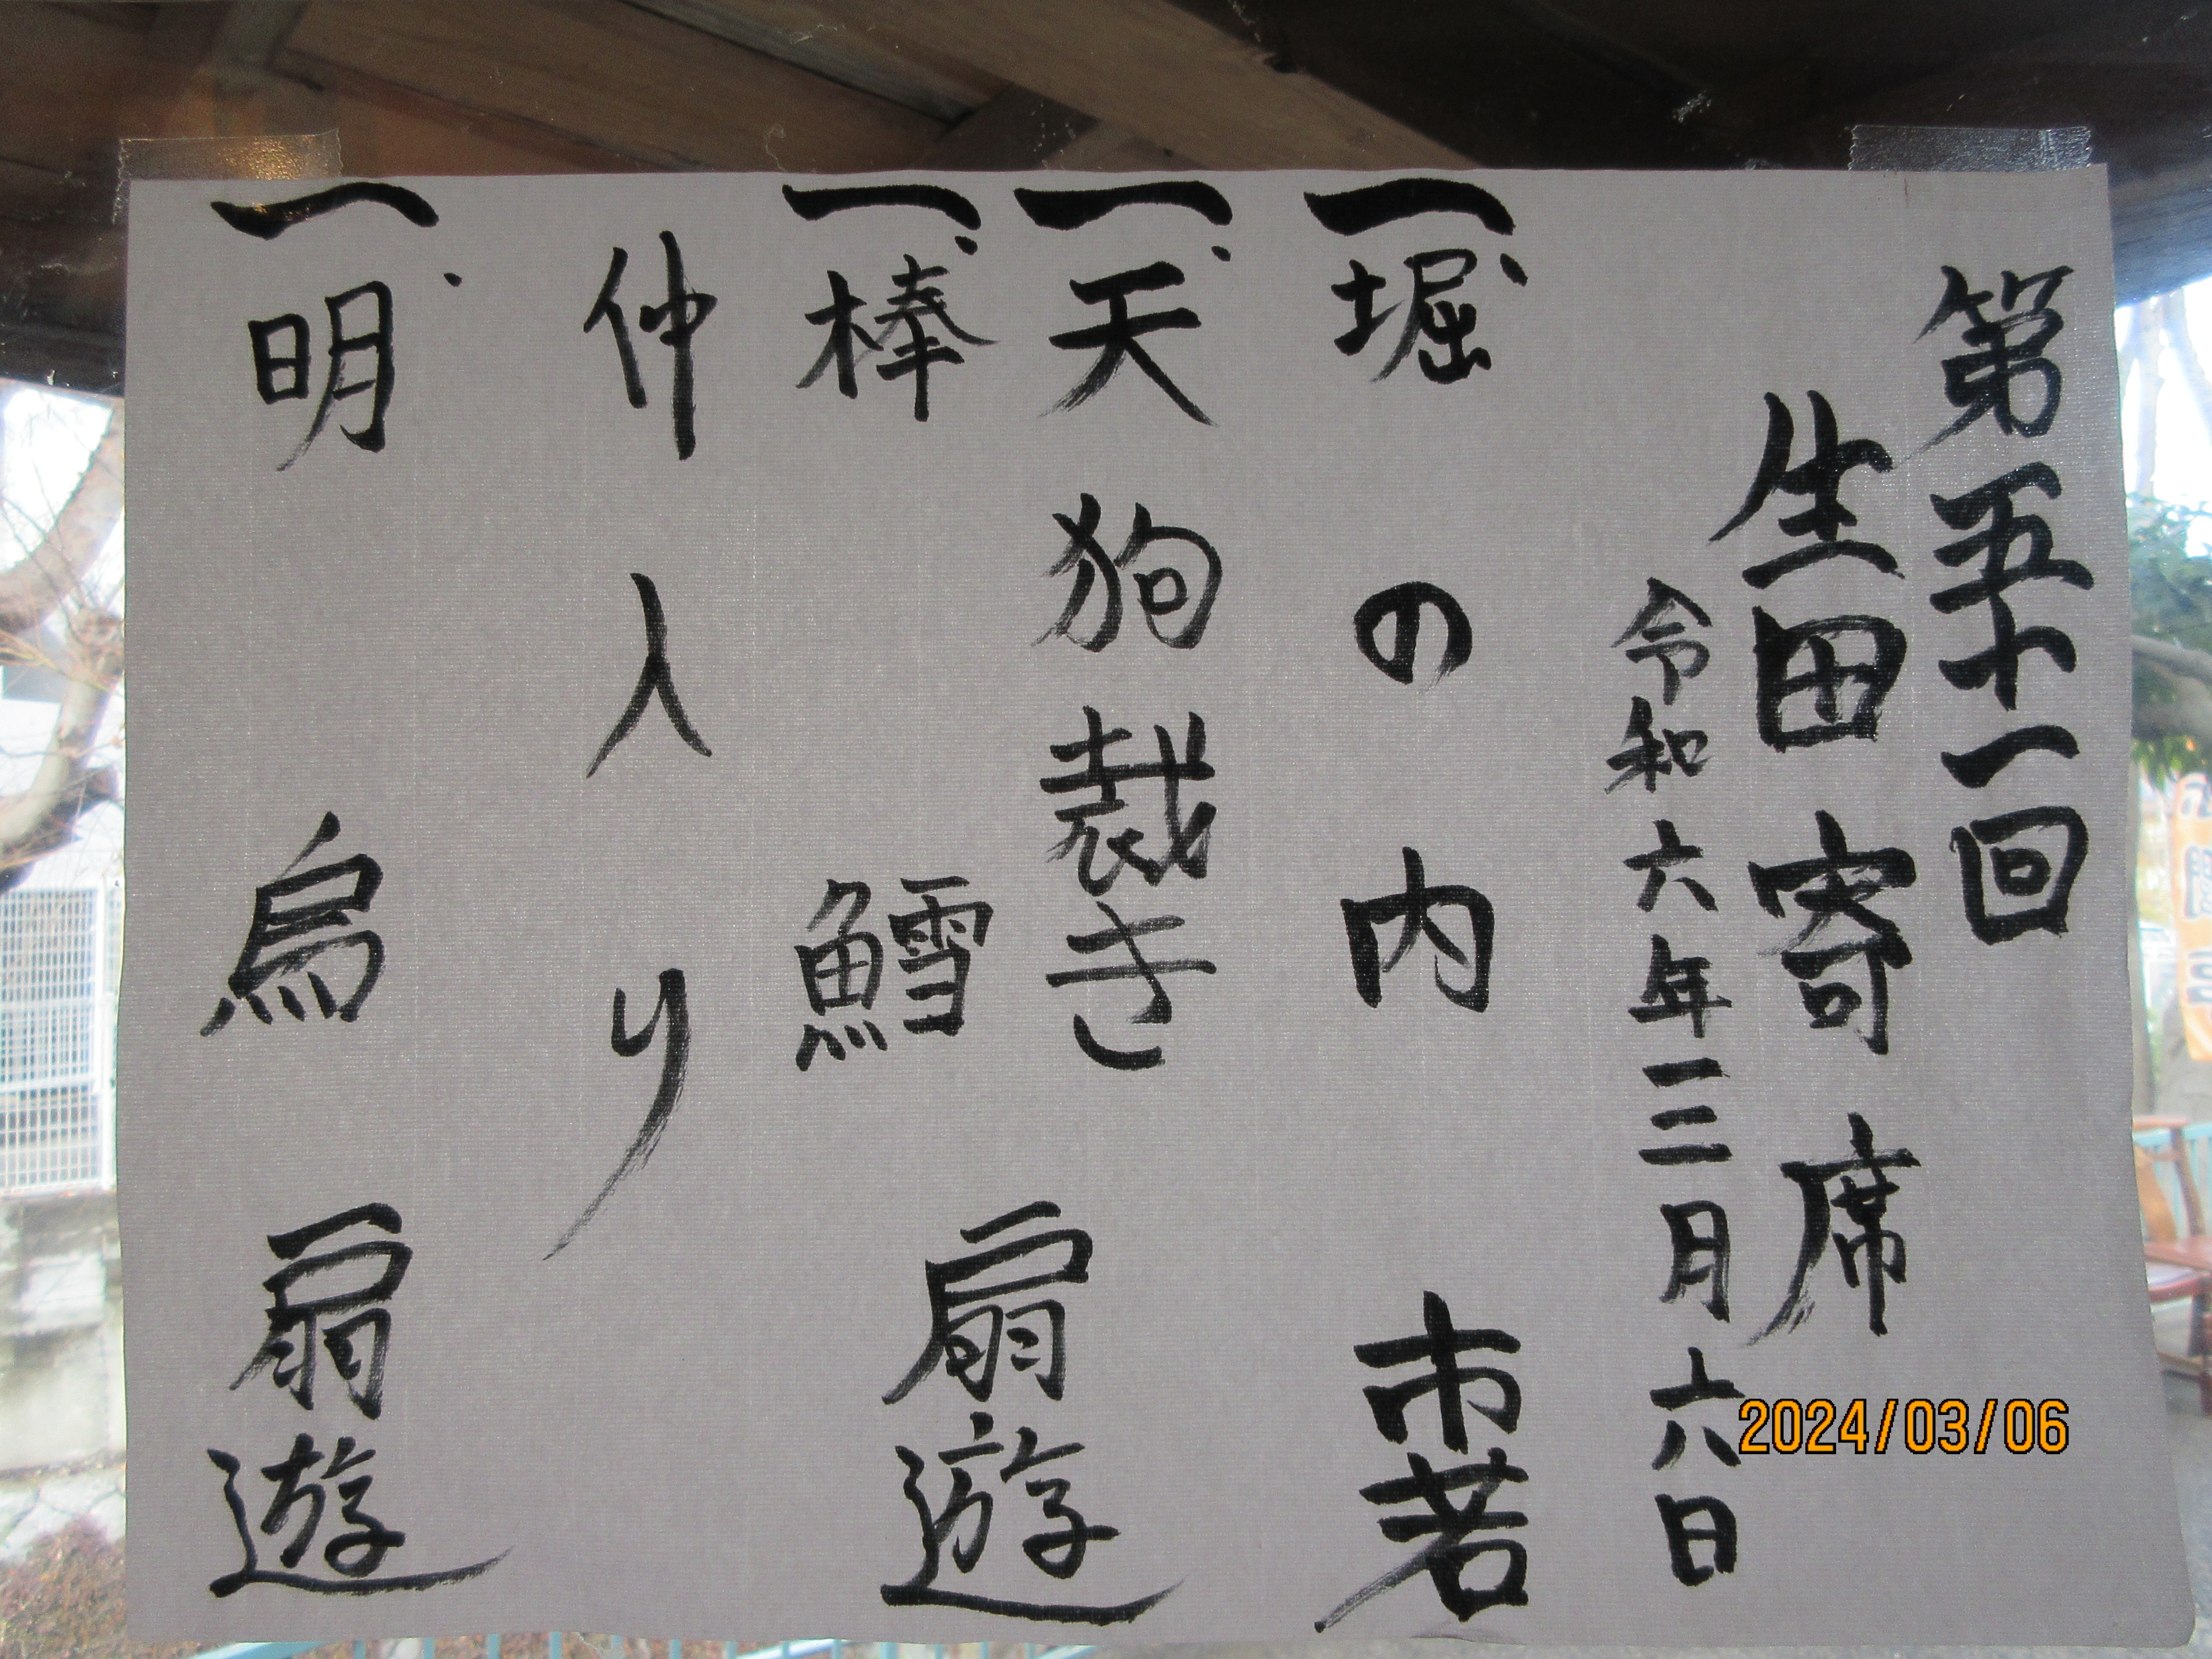 第五十一回
生田寄席
令和六年三月六日
一、堀の内 市若
一、天狗裁き
一、棒鱈 扇遊
仲入り
一、明烏 扇遊
2024/03/06